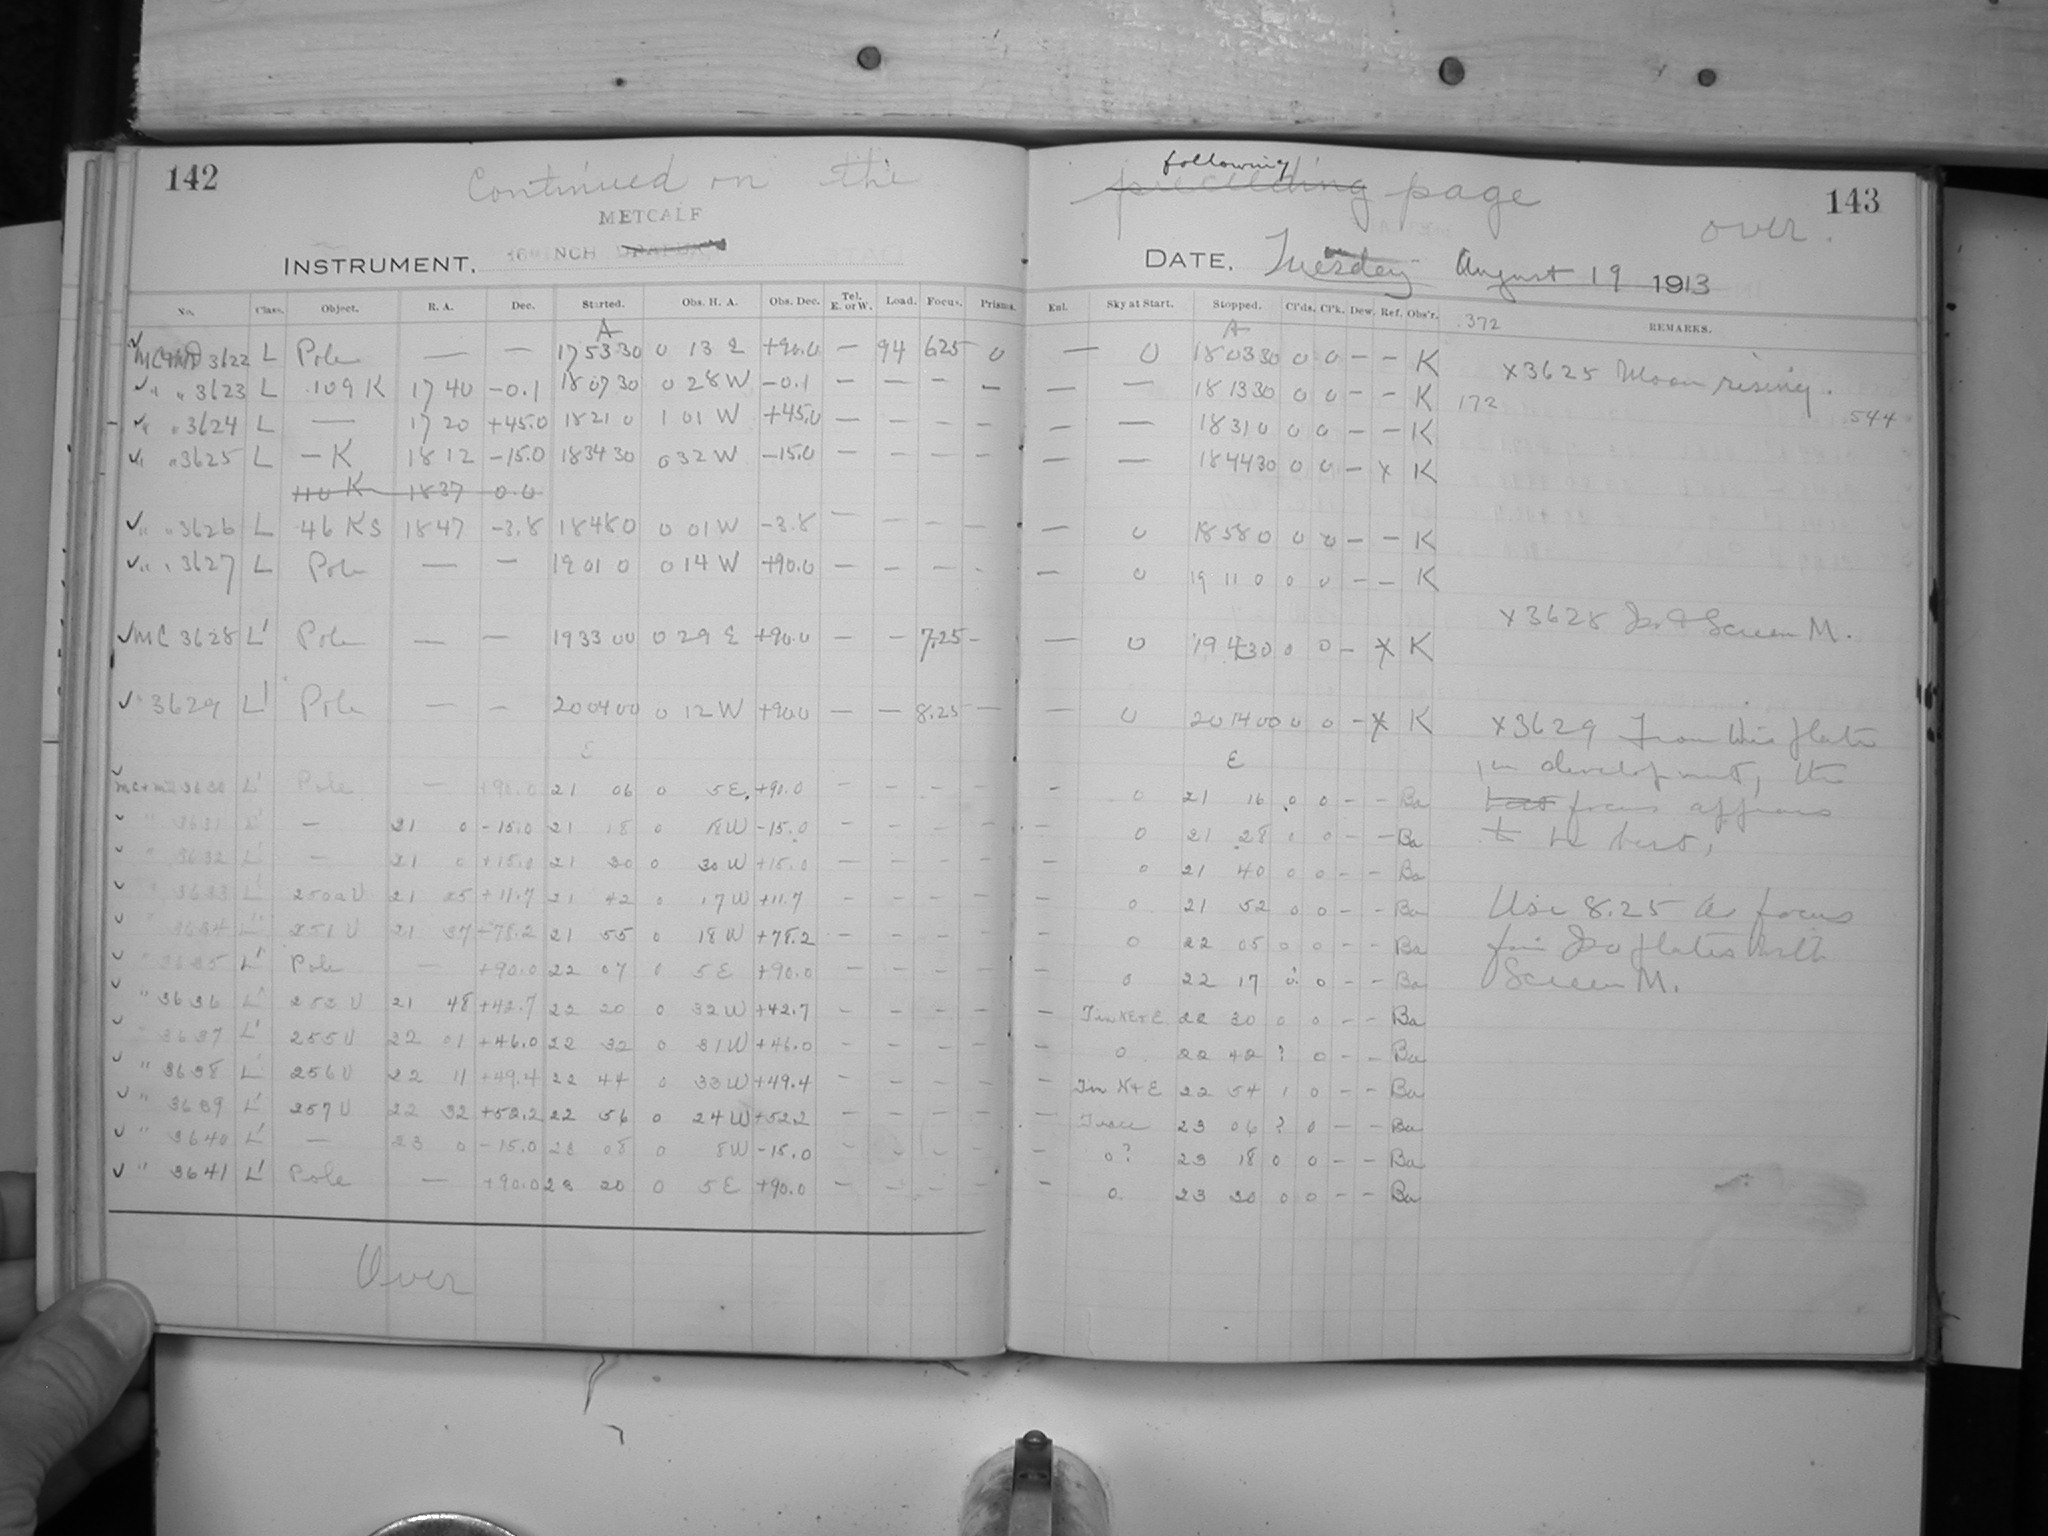 142
Continued on the
following
preceeding page
143
METCALF
over.
INSTRUMENT. INCH
DATE. Tuesday August 19 1913
No. Class. Object. R. A. Dec. Started. Obs. H. A. Obs. Dec. Tel. E. or W. Load. Focus. Prisms. Exl. Sky at Start. Stopped. Cl'ds. Cl'k. Dew. Ref. Obs'r. 372 REMARKS.
A A
3622 L Pole — — 175330 0 13 E +90.0 — 94 625 0 — 0 180330 0 0 — — K
✓ " " 3623 L 109 K 1740 -0.1 180730 0 28W -0.1 — — — — — — 181330 0 0 — — K
✓ " " 3624 L — 1720 +45.0 18210 1 01 W +45.0 — — — — — — 18310 0 0 — — K
✓ " " 3625 L — K 1812 -15.0 183430 032W -15.0 — — — — — — 184430 0 0 — x K
110 K 1837 0.0
✓ " " 3626 L 46 KS 1847 -3.8 18480 0 01W -3.8 — — — — — 0 18580 0 0 — — K
✓ " " 3627 L Pole — — 1901 0 0 14 W +90.0 — — — — — 0 19 11 0 0 0 — — K
✓ MC 3628 L' Pole — — 193300 0 29 E +90.0 — — 7.25 — — 0 19 4330 0 0 — x K
✓ " 3629 L' Pole — — 200400 0 12W +90.0 — — 8.25 — — 0 201400 0 0 — x K
E E
3630 L' Pole — +90.0 21 06 0 5E +90.0 — — — — — 0 21 16 0 0 — — Ba
✓ " 3631 L' — 21 0 -15.0 21 18 0 18W -15.0 — — — — — 0 21 28 0 0 — — Ba
✓ " 3632 L' — 21 0 +15.0 21 30 0 30W +15.0 — — — — — 0 21 40 0 0 — — Ba
✓ " 3633 L' 250aU 21 25 +11.7 21 42 0 17W +11.7 — — — — — 0 21 52 0 0 — — Ba
✓ " 3634 L' 251 U 21 37 +78.2 21 55 0 18W +78.2 — — — — — 0 22 05 0 0 — — Ba
✓ " 3635 L' Pole — +90.0 22 07 0 5E +90.0 — — — — — 0 22 17 0 0 — — Ba
✓ " 3636 L' 253 U 21 48 +42.7 22 20 0 32W +42.7 — — — — — 22 30 0 0 — — Ba
✓ " 3637 L' 255U 22 01 +46.0 22 32 0 31W +46.0 — — — — — 0 22 42 ? 0 — — Ba
✓ " 3638 L' 256U 22 11 +49.4 22 44 0 33W +49.4 — — — — — N+E 22 54 1 0 — — Ba
✓ " 3639 L' 257U 22 32 +52.2 22 56 0 24W +52.2 — — — — — Trace 23 06 ? 0 — — Ba
✓ " 3640 L' — 23 0 -15.0 23 08 0 8W -15.0 — — — — — 0? 23 18 0 0 — — Ba
✓ " 3641 L' Pole — +90.0 23 20 0 5E +90.0 — — — — — 0 23 30 0 0 — — Ba
Over
x3625 Moon rising.
172
544
x3628 Iso + Screen M.
x3629 From this plate
in development, the
best focus appears
to be best,
Use 8.25 as focus
for Iso plates with
Screen M.